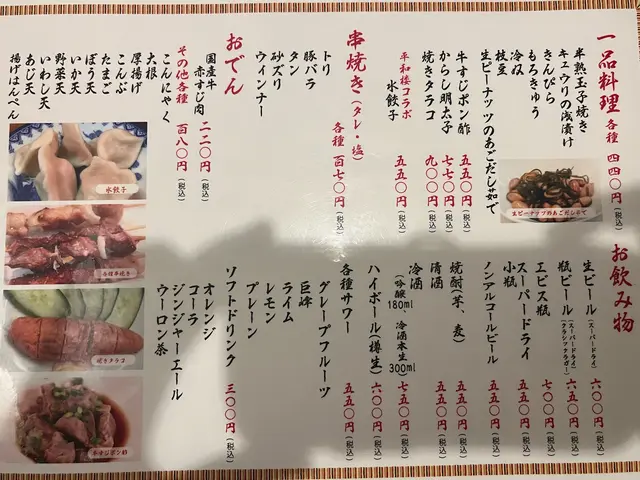 一品料理 各種 四四〇円(税込)
半熟玉子焼き
キュウリの浅漬け
きんぴら
もろきゅう
冷奴
枝豆
生ピーナッツのあごだし茹で
生ピーナッツのあごだし茹で
牛すじポン酢 五五〇円(税込)
からし明太子 七七〇円(税込)
焼きタラコ 九〇〇円(税込)
平和楼コラボ
水餃子 五五〇円(税込)
串焼き(タレ・塩) 各種 百七〇円(税込)
トリ
豚バラ
タン
砂ズリ
ウィンナー
おでん
国産牛
赤すじ肉 二二〇円(税込)
その他各種 百八〇円(税込)
こんにゃく
大根
厚揚げ
こんぶ
たまご
ぼう天
いか天
野菜天
いわし天
あじ天
揚げはんぺん
水餃子
各種串焼き
焼きタラコ
牛すじポン酢
お飲み物
生ビール(スーパードライ) 六〇〇円(税込)
瓶ビール(スーパードライ/クラシックラガー) 六五〇円(税込)
エビス瓶 七〇〇円(税込)
スーパードライ
小瓶 五五〇円(税込)
ノンアルコールビール 五五〇円(税込)
焼酎(芋、麦) 五五〇円(税込)
清酒 五五〇円(税込)
冷酒
(吟醸180ml 冷酒本生300ml) 七五〇円(税込)
ハイボール(樽生) 六〇〇円(税込)
各種サワー 五五〇円(税込)
グレープフルーツ
巨峰
ライム
レモン
プレーン
ソフトドリンク 三〇〇円(税込)
オレンジ
コーラ
ジンジャーエール
ウーロン茶